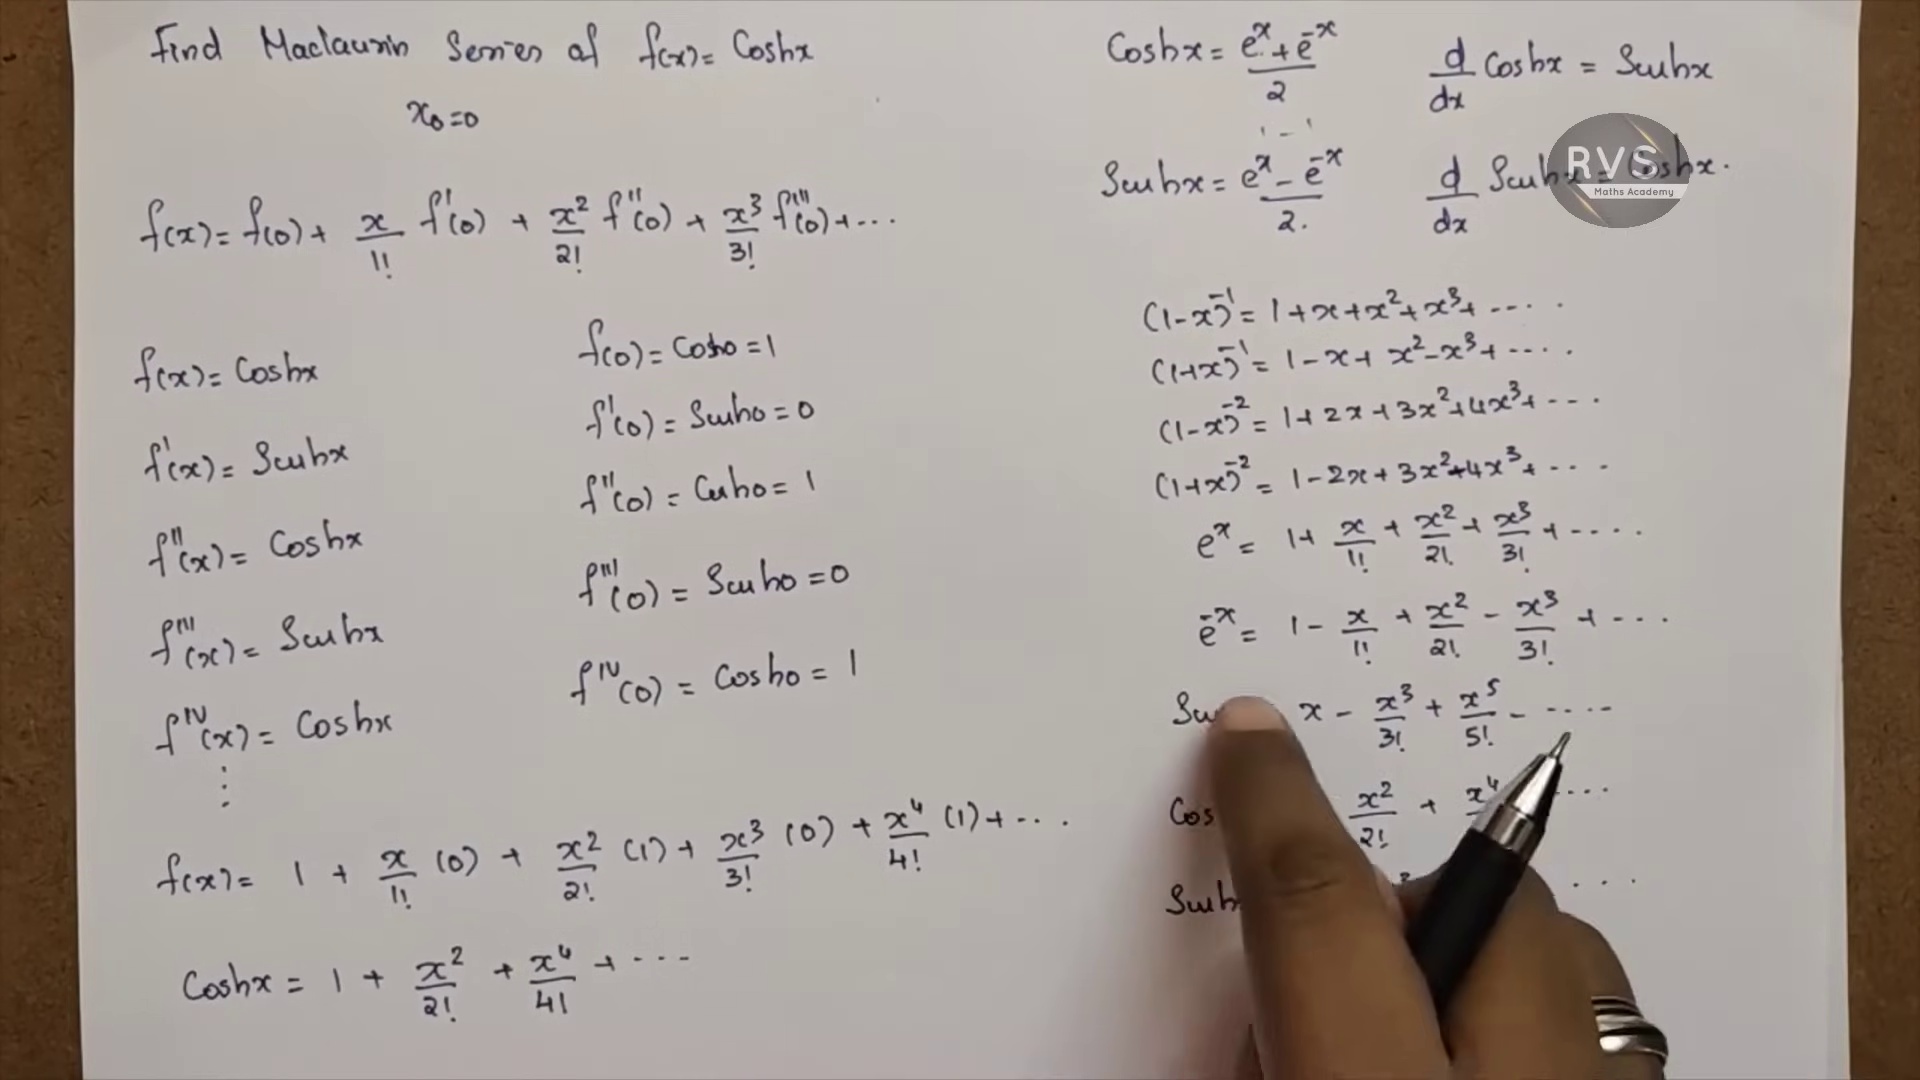 Find Maclaurin Series of f(x) = Coshx
x₀=0
f(x) = f(0) + x/1! f'(0) + x²/2! f''(0) + x³/3! f'''(0) + ...
f(x) = Coshx
f'(x) = Sinhx
f''(x) = Coshx
f'''(x) = Sinhx
f^IV(x) = Coshx
⋮
f(0) = Cosh0 = 1
f'(0) = Sinh0 = 0
f''(0) = Cosh0 = 1
f'''(0) = Sinh0 = 0
f^IV(0) = Cosh0 = 1
f(x) = 1 + x/1! (0) + x²/2! (1) + x³/3! (0) + x⁴/4! (1) + ...
Coshx = 1 + x²/2! + x⁴/4! + ...
Coshx = (e^x + e^-x)/2
d/dx Coshx = Sinhx
Sinhx = (e^x - e^-x)/2.
d/dx Sinhx = Coshx.
RVS
Maths Academy
(1-x)^-1 = 1+x+x²+x³+ ....
(1+x)^-1 = 1-x+x²-x³+ ....
(1-x)^-2 = 1+2x+3x²+4x³+ ...
(1+x)^-2 = 1-2x+3x²-4x³+ ....
e^x = 1+ x/1! + x²/2! + x³/3! + ....
e^-x = 1- x/1! + x²/2! - x³/3! + ...
x - x³/3! + x⁵/5! - .....
Cos x²/2! + x⁴ ...
Sinh ...